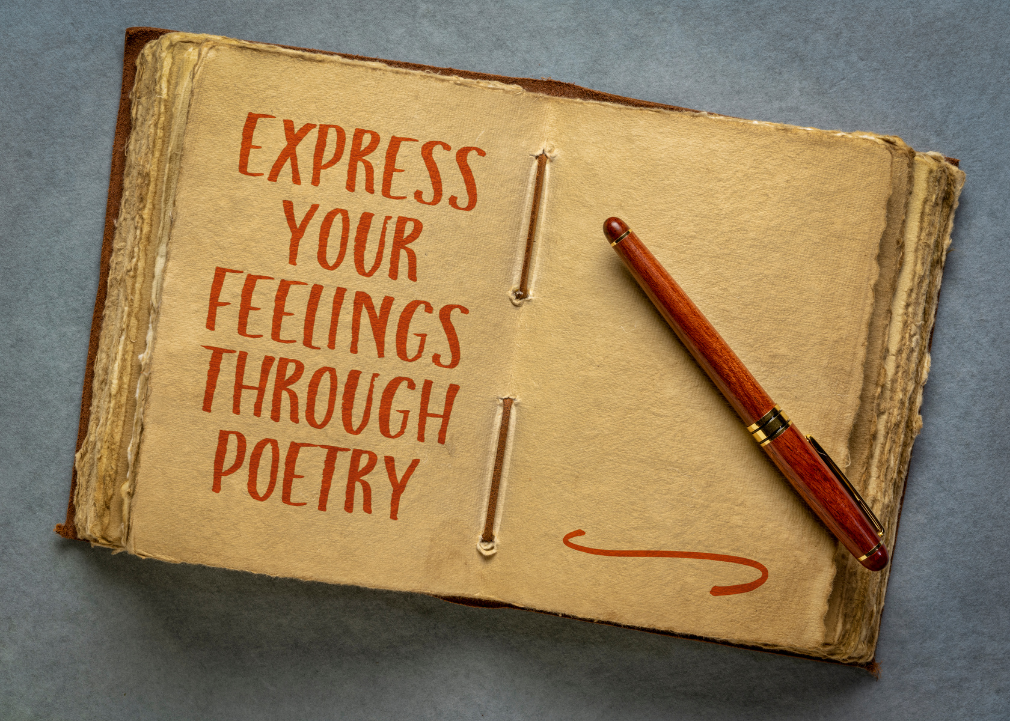 EXPRESS
YOUR
FEELINGS
THROUGH
POETRY